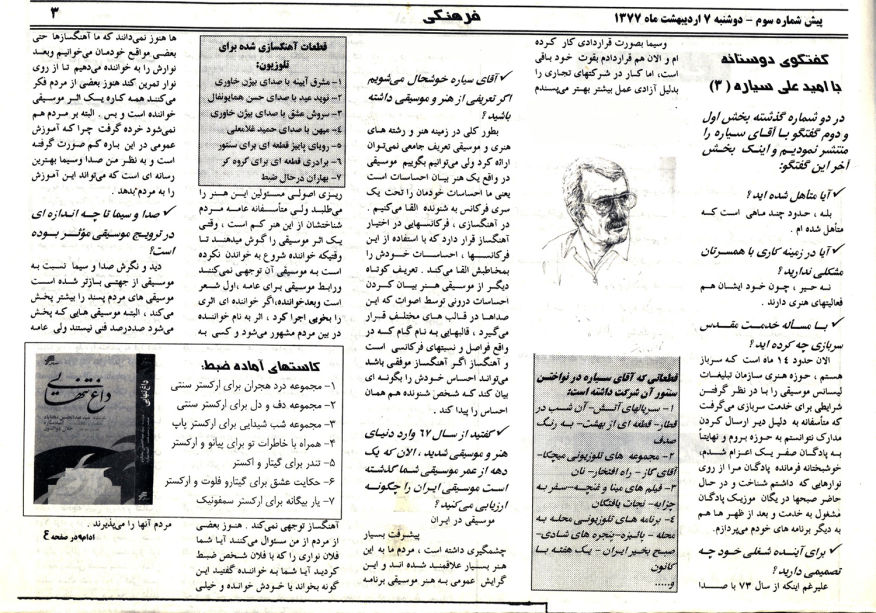 پیش شماره سوم - دوشنبه ۷ اردیبهشت ماه ۱۳۷۷
فرهنگی
۳
گفتگوی دوستانه
با امید علی سیاره (۳)
در دو شماره گذشته بخش اول
و دوم گفتگو با آقای سیاره را
منتشر نمودیم و اینک بخش
آخر این گفتگو:
✓ آیا متأهل شده اید؟
بله ، حدود چند ماهی است که
متأهل شده ام .
✓ آیا در زمینه کاری با همسرتان
مشکلی ندارید؟
نه خیر ، چون خود ایشان هم
فعالیتهای هنری دارند .
✓ با مسأله خدمت مقدس
سربازی چه کرده اید؟
الان حدود ۱۴ ماه است که سرباز
هستم ، حوزه هنری سازمان تبلیغات
لیسانس موسیقی را با در نظر گرفتن
شرایطی برای خدمت سربازی می‌گرفت
که متأسفانه به دلیل دیر ارسال کردن
مدارک نتوانستم به حوزه بروم و نهایتاً
به پادگان صفر یک اعزام شدم،
خوشبختانه فرمانده پادگان مرا از روی
نوارهایی که داشتم شناخت و در حال
حاضر صبحها در یگان موزیک پادگان
مشغول به خدمت و بعد از ظهر ها هم
به دیگر برنامه های خودم می‌پردازم.
✓ برای آینده شغلی خود چه
تصمیمی دارید؟
علیرغم اینکه از سال ۷۳ با صدا
وسیما بصورت قراردادی کار کرده
ام و الان هم قراردادم بقوت خود باقی
است، اما کار در شرکتهای تجاری را
بدلیل آزادی عمل بیشتر بهتر می‌پسندم
قطعاتی که آقای سیاره در نواختن
سنتور آن شرکت داشته است:
۱- سریالهای آتش- آن شب در
قطار- قطعه ای از بهشت- به رنگ
صدف
۲- مجموعه های تلوزیونی میچکا-
آقای گاز - راه افتخار- نان
۳- فیلم های مینا و غنچه- سفر به
چزابه- نجات یافتگان
۴- برنامه های تلوزیونی محله به
محله - پائیزه- پنجره های شادی-
صبح بخیر ایران - یک هفته با
کانون
و.....
✓ آقای سیاره خوشحال می‌شویم
اگر تعریفی از هنر و موسیقی داشته
باشید؟
بطور کلی در زمینه هنر و رشته های
هنری و موسیقی تعریف جامعی نمی‌توان
ارائه کرد ولی می‌توانیم بگوییم موسیقی
در واقع یک هنر بیان احساسات است
یعنی ما احساسات خودمان را تحت یک
سری فرکانس به شنونده القا می‌کنیم .
در آهنگسازی ، فرکانسهایی در اختیار
آهنگساز قرار دارد که با استفاده از این
فرکانسها ، احساسات خودش را
بمخاطبش القا می‌کند . تعریف کوتاه
دیگر از موسیقی هنر بیان کردن
احساسات درونی توسط اصوات که این
صداها در قالب های مختلف قرار
می‌گیرد ، قالبهایی به نام گام که در
واقع فواصل و نسبتهای فرکانسی است
و آهنگساز اگر آهنگساز موفقی باشد
می‌تواند احساس خودش را بگونه ای
بیان کند که شخص شنونده هم همان
احساس را پیدا کند .
✓ گفتید از سال ۶۷ وارد دنیای
هنر و موسیقی شدید ، الان که یک
دهه از عمر موسیقی شما گذشته
است موسیقی ایران را چگونه
ارزیابی می‌کنید؟
موسیقی در ایران پیشرفت بسیار
چشمگیری داشته است ، مردم ما به این
هنر بسیار علاقمند شده اند و این
گرایش عمومی به هنر موسیقی برنامه
قطعات آهنگسازی شده برای
تلوزیون:
۱- مشرق آیینه با صدای بیژن خاوری
۲- نوید عید با صدای حسن همایونفال
۳- سروش عشق با صدای بیژن خاوری
۴- میهن با صدای حمید غلامعلی
۵- رویای پاییز قطعه ای برای سنتور
۶- برادری قطعه ای برای گروه کر
۷- بهاران درحال ضبط
ریزی اصولی مسئولین این هنر را
می‌طلبد ولی متأسفانه عامه مردم
شناختشان از این هنر کم است ، وقتی
یک اثر موسیقی را گوش میدهند تا
وقتیکه خواننده شروع به خواندن نکرده
است به موسیقی آن توجهی نمی‌کنند
ورابط موسیقی برای عامه ،اول شعر
است وبعدخواننده،اگر خواننده ای اثری
را بخوبی اجرا کرد ، اثر به نام خواننده
در بین مردم مشهور می‌شود و کسی به
کاستهای آماده ضبط:
۱- مجموعه درد هجران برای ارکستر سنتی
۲- مجموعه دف و دل برای ارکستر سنتی
۳- مجموعه شب شیدایی برای ارکستر پاپ
۴- همراه با خاطرات تو برای پیانو و ارکستر
۵- تندر برای گیتار و اکستر
۶- حکایت عشق برای گیتارو فلوت و ارکستر
۷- یار بیگانه برای ارکستر سمفونیک
داغ تنهایی
داغ تنهایی
آهنگساز توجهی نمی‌کند . هنوز بعضی
از مردم از من سئوال می‌کنند آیا شما
فلان نواری را که با فلان شخص ضبط
کردید آیا شما به خواننده گفتید این
گونه بخواند یا خودش خوانده و خیلی
ها هنوز نمی‌دانند که ما آهنگسازها حتی
بعضی مواقع خودمان می‌خوانیم وبعد
نوارش را به خواننده می‌دهیم تا از روی
نوار تمرین کند هنوز بعضی از مردم فکر
می‌کنند همه کاره یک اثر موسیقی
خواننده است و بس . البته بر مردم هم
نمی‌شود خرده گرفت چرا که آموزش
عمومی در این باره کم صورت گرفته
است و به نظر من صدا وسیما بهترین
رسانه ای است که می‌تواند این آموزش
را به مردم بدهد .
✓ صدا و سیما تا چه اندازه ای
در ترویج موسیقی مؤثر بوده
است؟
دید و نگرش صدا و سیما نسبت به
موسیقی از جهتی بازتر شده است
موسیقی های مردم پسند را بیشتر پخش
می‌کند ، البته موسیقی هایی که پخش
می‌شود صددرصد فنی نیستند ولی عامه
مردم آنها را می‌پذیرند .
ادامه در صفحه ۴